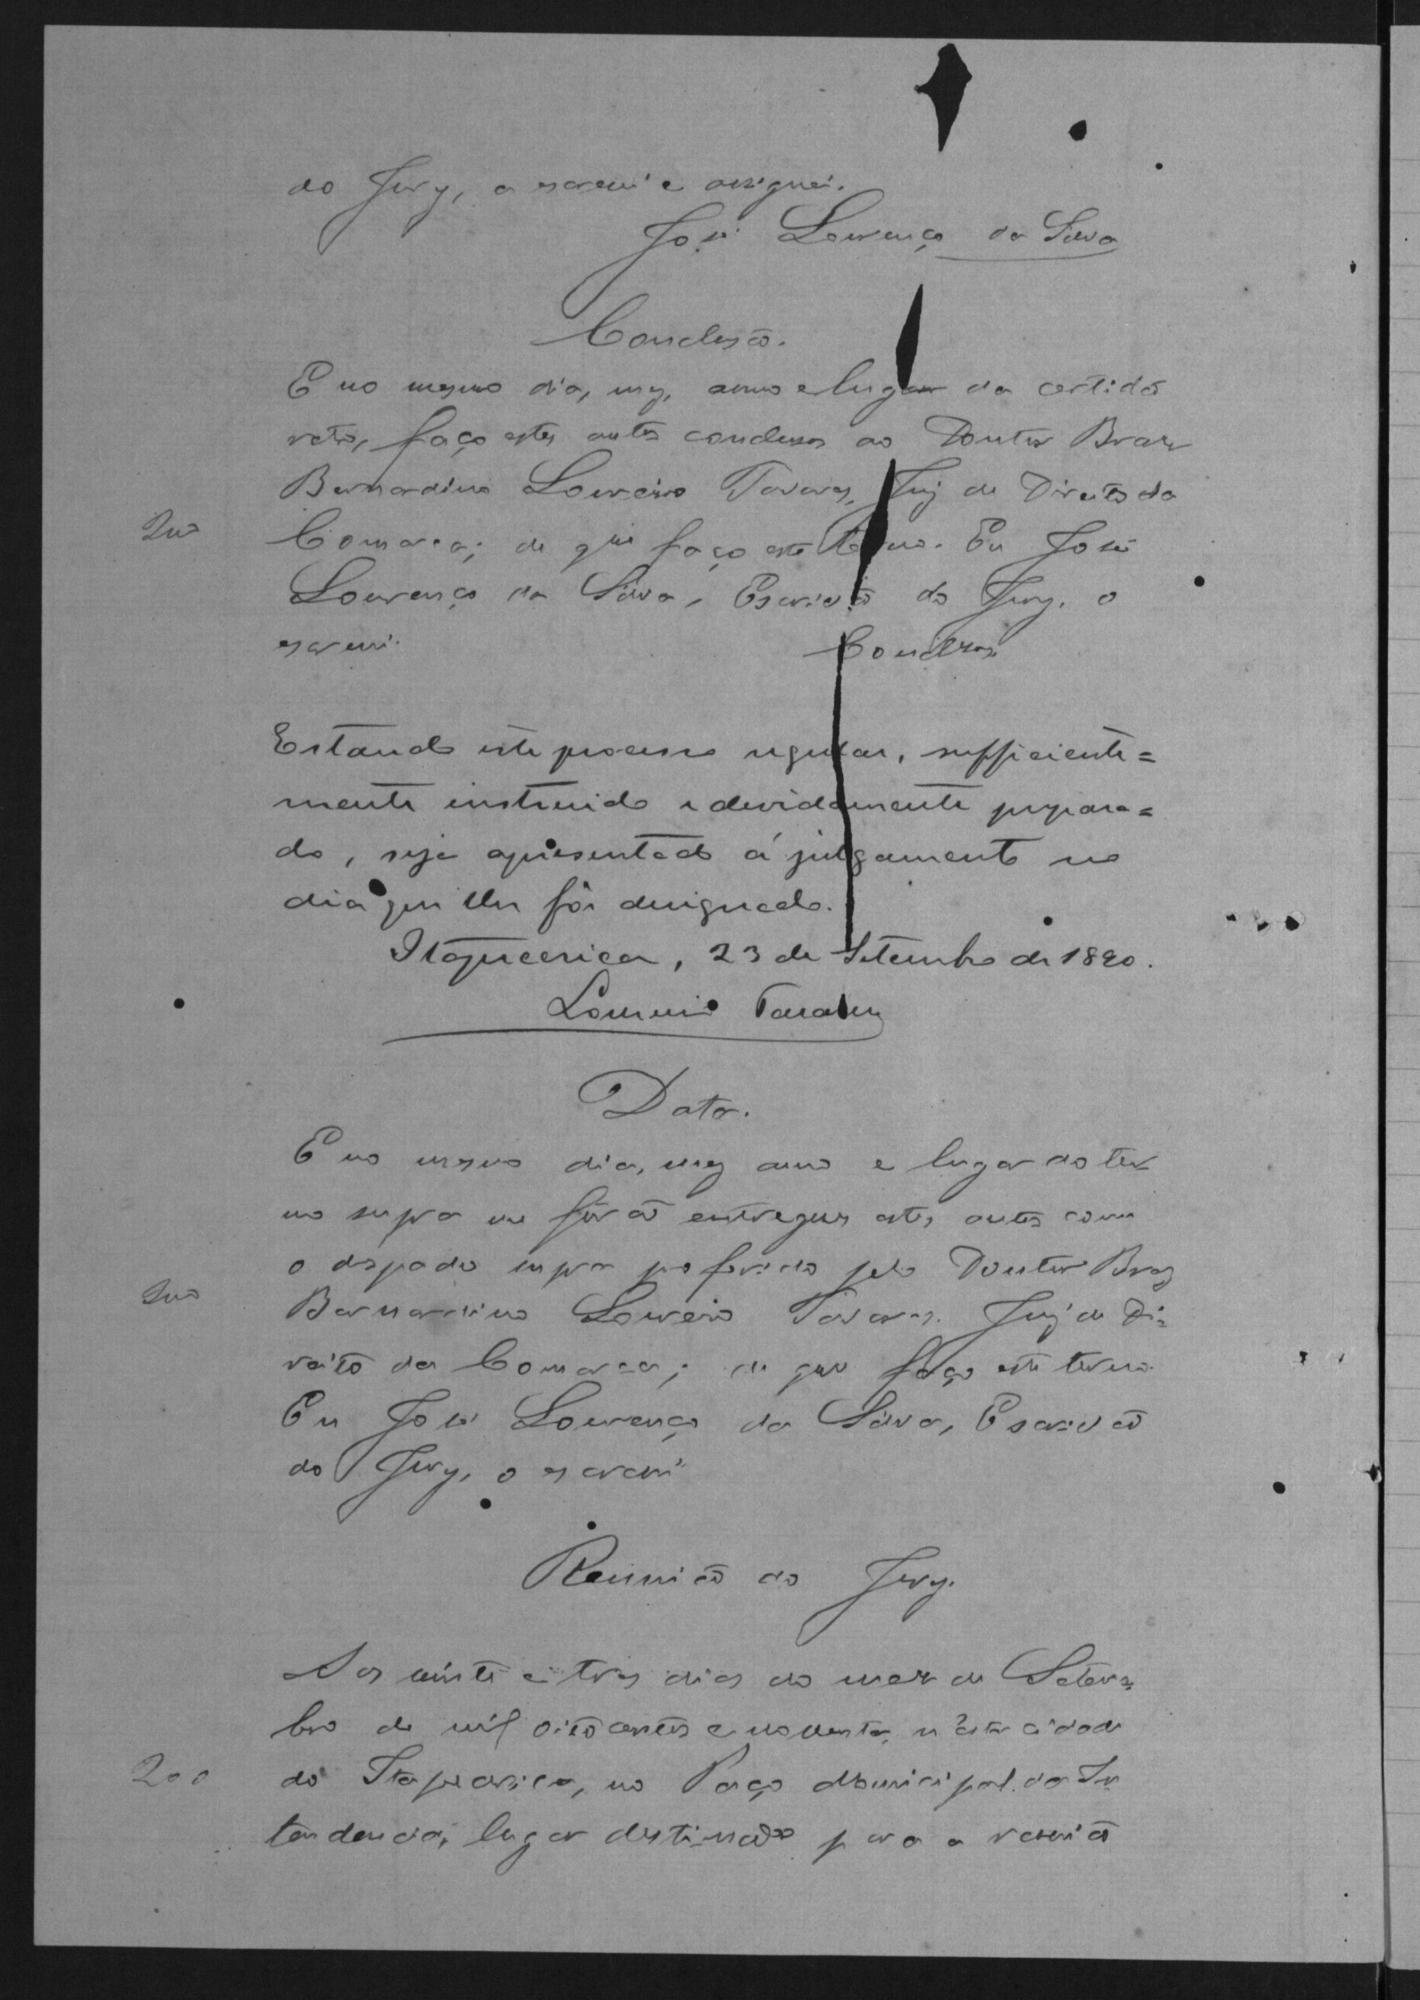 do Jury, o escrevi e assignei.
José Lourenço da Silva
Conclusão.
E no mesmo dia, mez, anno e lugar da certidão
retro, faço estes autos conclusos ao Doutor Braz
Bernardino Loureiro Tavares, Juiz de Direito da
200
Comarca; de que faço este termo. Eu José
Lourenço da Silva, Escrivão do Jury, o
escrevi.
Conclusos
Estando este processo regular, sufficiente=
mente instruido e devidamente prepara=
do, seja apresentado á julgamento no
dia que lhe fôr designado.
Itapecerica, 23 de Setembro de 1890.
Loureiro Tavares
Data.
E no mesmo dia, mez anno e lugar do ter
mo supra me fôrão entregues estes autos com
o despacho supra proferido pelo Doutor Braz
200
Bernardino Loureiro Tavares, Juiz de Di=
reito da Comarca; de que faço este termo.
Eu José Lourenço da Silva, Escrivão
do Jury, o escrevi
Reunião do Jury.
Aos vinte e tres dias do mez de Setem=
bro de mil oitocentos e noventa, n'esta cidade
200
de Itapecerica, no Paço Municipal da In
tendencia, lugar destinado para a reunião